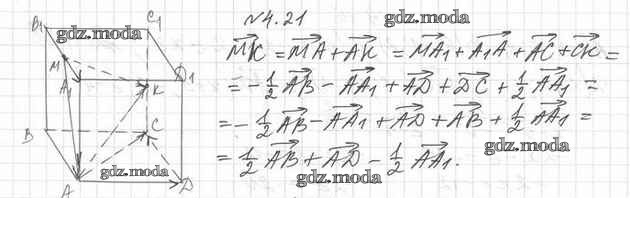 №4.21
B₁ C₁ M A₁ D₁ K B C A D
MK = MA + AK = MA₁ + A₁A + AC + CK =
= -1/2 AB - AA₁ + AD + DC + 1/2 AA₁ =
= -1/2 AB - AA₁ + AD + AB + 1/2 AA₁ =
= 1/2 AB + AD - 1/2 AA₁.
gdz.moda
gdz.moda
gdz.moda
gdz.moda
gdz.moda